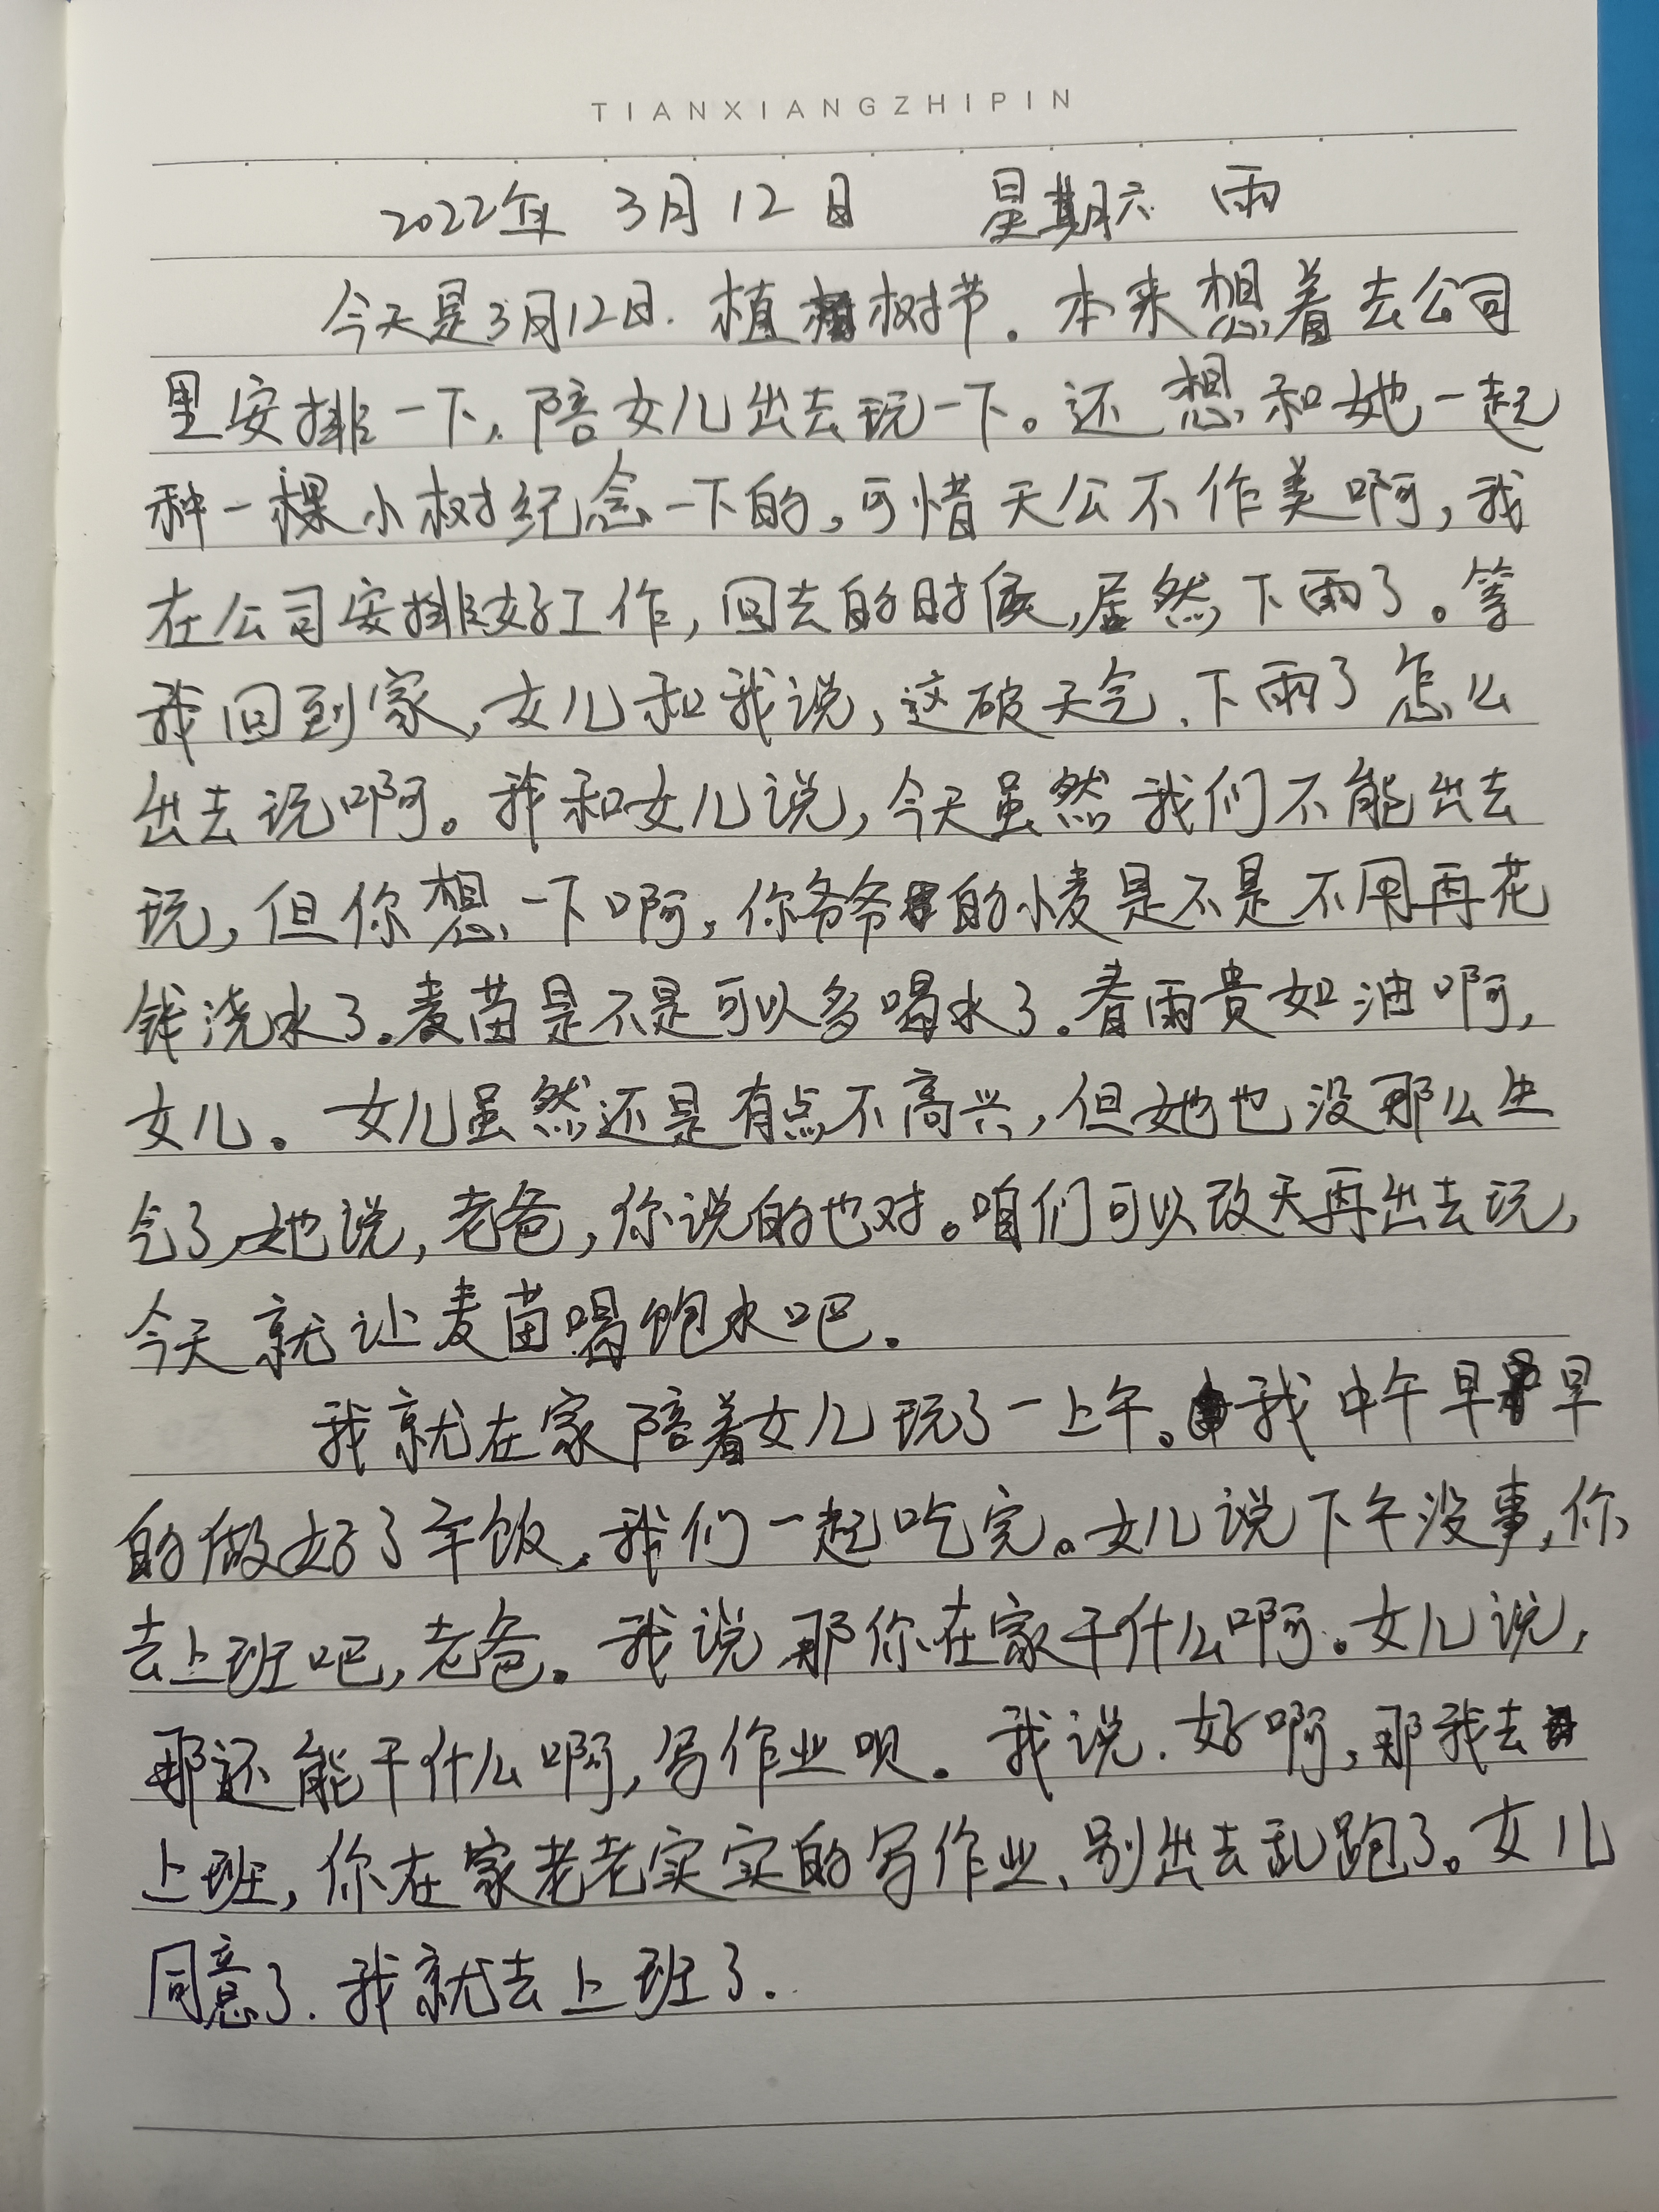 TIANXIANGZHIPIN
2022年 3月12日 星期六 雨
今天是3月12日.植树节。本来想着去公司
里安排一下,陪女儿出去玩一下。还想和她一起
种一棵小树纪念一下的,可惜天公不作美啊,我
在公司安排好工作,回去的时候,居然下雨了。等
我回到家,女儿和我说,这破天气、下雨了怎么
出去玩啊。我和女儿说,今天虽然我们不能出去
玩,但你想一下啊,你爷爷的小麦是不是不用再花
钱浇水了。麦苗是不是可以多喝水了。春雨贵如油啊,
女儿。女儿虽然还是有点不高兴,但她也没那么生
气了,她说,老爸,你说的也对。咱们可以改天再出去玩,
今天就让麦苗喝饱水吧。
我就在家陪着女儿玩了一上午。我中午早早
的做好了午饭,我们一起吃完。女儿说下午没事,你
去上班吧,老爸。我说那你在家干什么啊。女儿说,
那还能干什么啊,写作业呗。我说.好啊,那我去
上班,你在家老老实实的写作业、别出去乱跑了。女儿
同意了.我就去上班了.